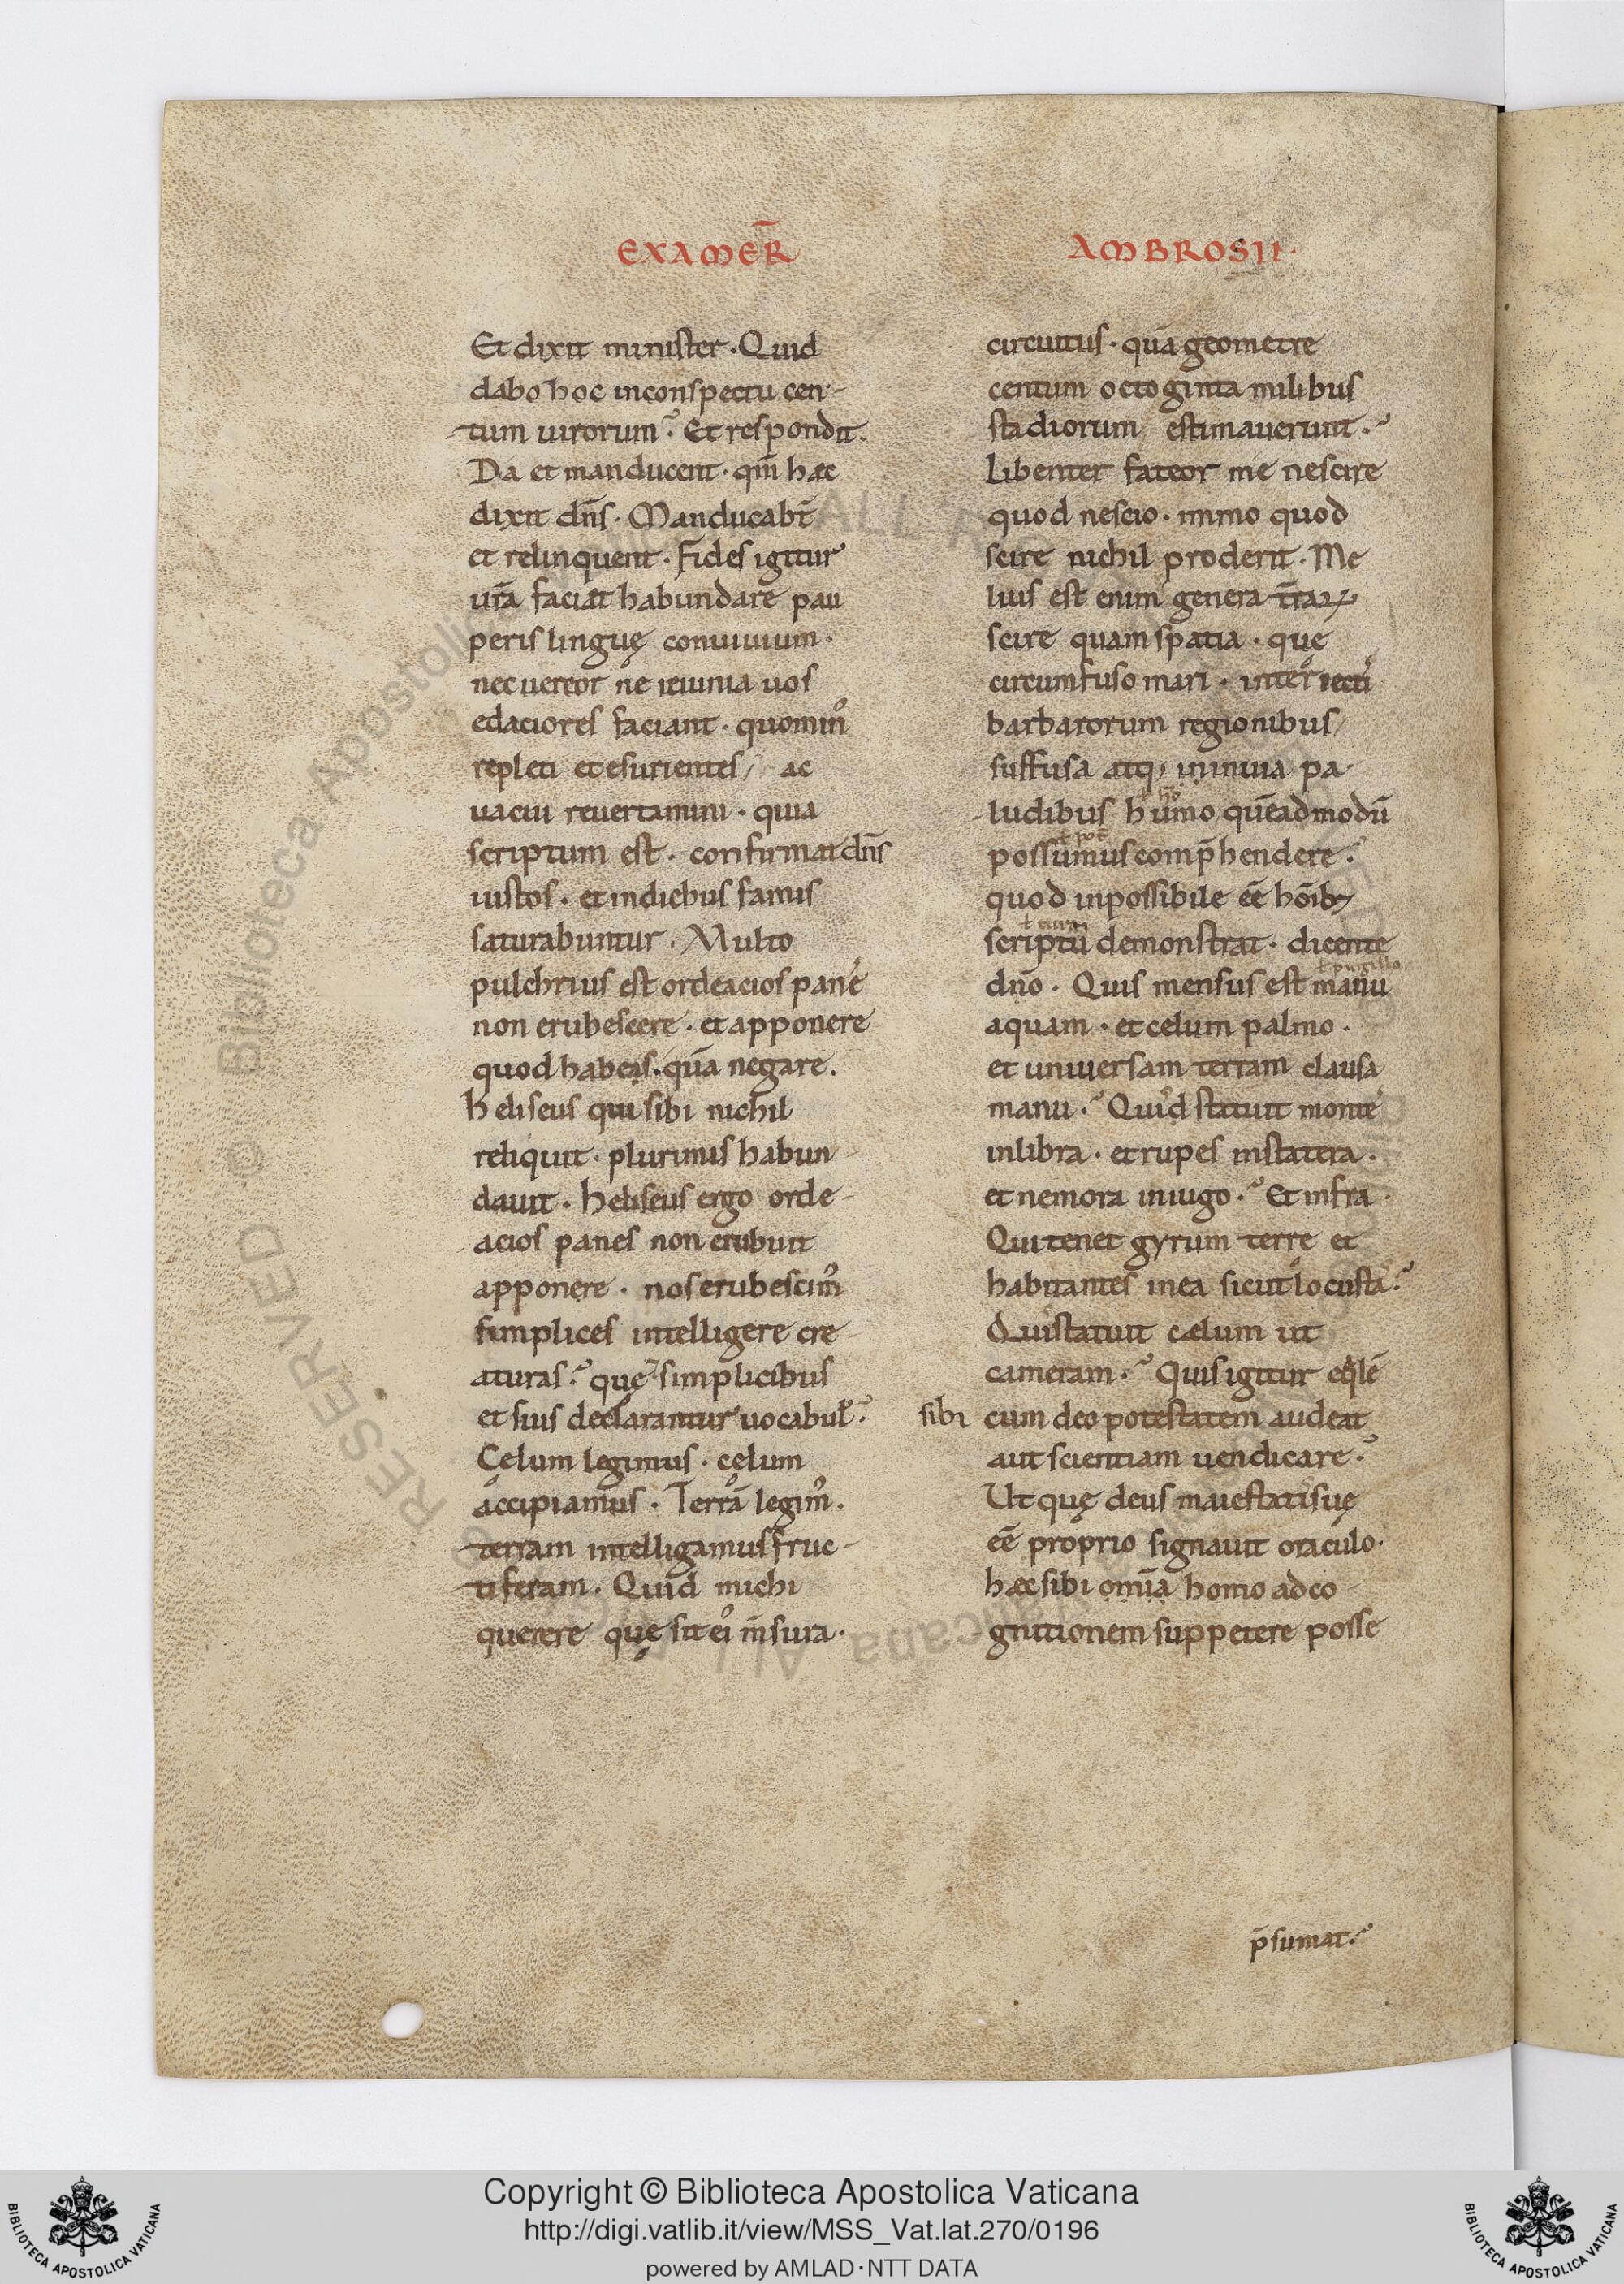 EXAMER̄
Et dixit minister · Quid
dabo hoc inconspectu cen-
tum uirorum? Et respondit.
Da et manducent · qm̄ hæc
dixit dn̄s · Manducabt̄
et relinquent · Fides igitur
ur̄a faciat habundare pau
peris linguę conuiuium ·
nec uereor ne ieiunia uos
edaciores faciant · quomin᷒
repleti et esurientes, ac
uacui reuertamini · quia
scriptum est · confirmat dn̄s
iustos · et indiebus famis
saturabuntur · Multo
pulchrius est ordeacios pane
non erubescere · et apponere
quod habeas · quā negare.
heliseus qui sibi nichil
reliquit · plurimis habun
dauit · heliseus ergo orde-
acios panes non erubuit
apponere · nos erubescim᷒
simplices intelligere cre-
aturas? quę simplicibus
et suis declarantur uocabul̄?
Celum legimus · cęlum
accipiamus · Terrā legim᷒.
terram intelligamus fruc-
tiferam. Quid michi
querere quę sit ei᷒ m̄sura ·
AMBROSII ·
circuitus · quā geometre
centum octoginta milibus
stadiorum estimauerunt?
Libenter fateor me nescire
quod nescio · immo quod
scire nichil proderit · Me
lius est enim genera tr̄aꝝ
scire quam spatia · que
circumfuso mari · inter iecti
barbarorum regionibus,
suffusa atq, inuia pa-
ludibus humo quēadmodū
possumus comp̄hendere?
quod inpossibile eē hōib;
scriptū demonstrat · dicente
dn̄o · Quis mensus est manu
ł pugillo
aquam · et celum palmo ·
et uniuersam terram clausa
manu? Quid statuit monte
inlibra · et rupes instatera ·
et nemora iniugo? Et infra ·
Qui tenet gyrum terre et
habitantes inea sicut locusta?
Qui statuit cælum ut
cameram? Quis igitur eqᷓlē
sibi cum deo potestatem audeat
aut scientiam uendicare?
Ut quę deus maiestati suę
eē proprio signauit oraculo ·
hæc sibi omīa homo ad co
gnitionem suppetere posse
p̄sumat?
Copyright © Biblioteca Apostolica Vaticana
http://digi.vatlib.it/view/MSS_Vat.lat.270/0196
powered by AMLAD·NTT DATA
BIBLIOTECA APOSTOLICA VATICANA
BIBLIOTECA APOSTOLICA VATICANA